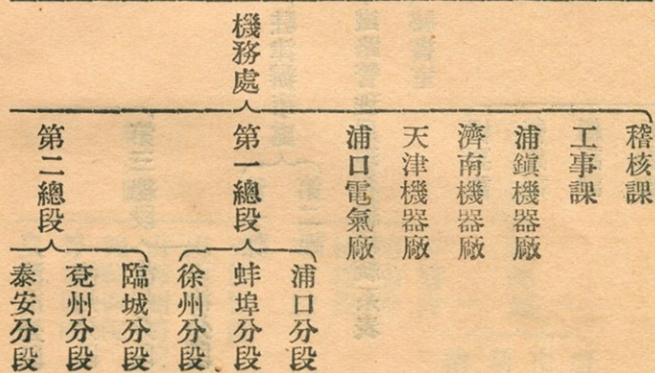 機務處
稽核課
工事課
浦鎭機器廠
濟南機器廠
天津機器廠
浦口電氣廠
第一總段
浦口分段
蚌埠分段
徐州分段
第二總段
臨城分段
兗州分段
泰安分段